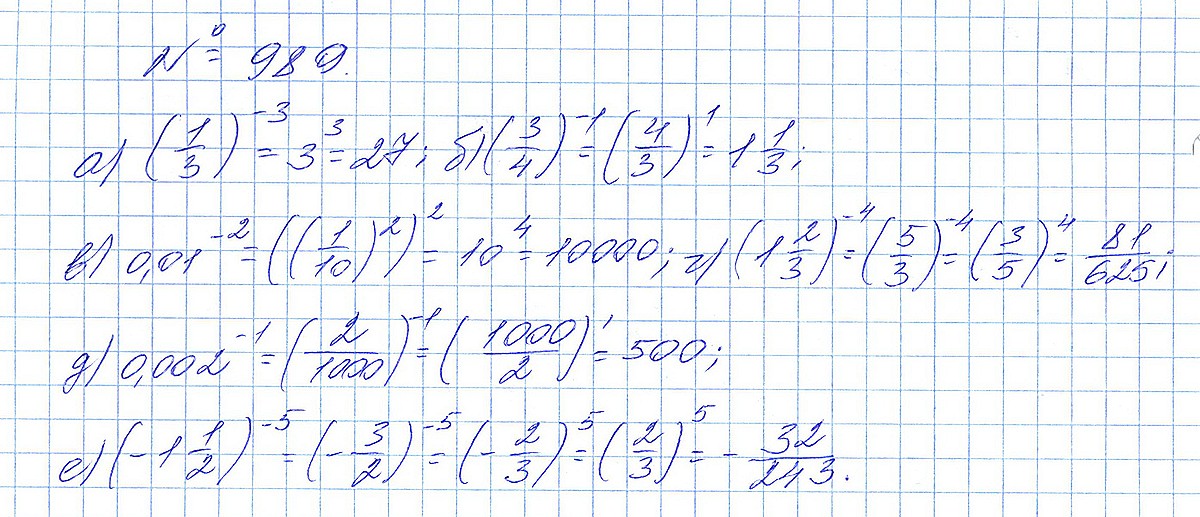 № 989.
а) (1/3)⁻³ = 3³ = 27; б) (3/4)⁻¹ = (4/3)¹ = 1 1/3;
в) 0,01⁻² = ((1/10)²)² = 10⁴ = 10000; г) (1 2/3)⁻⁴ = (5/3)⁻⁴ = (3/5)⁴ = 81/625;
д) 0,002⁻¹ = (2/1000)⁻¹ = (1000/2)¹ = 500;
е) (-1 1/2)⁻⁵ = (-3/2)⁻⁵ = (-2/3)⁵ = (2/3)⁵ = -32/243.